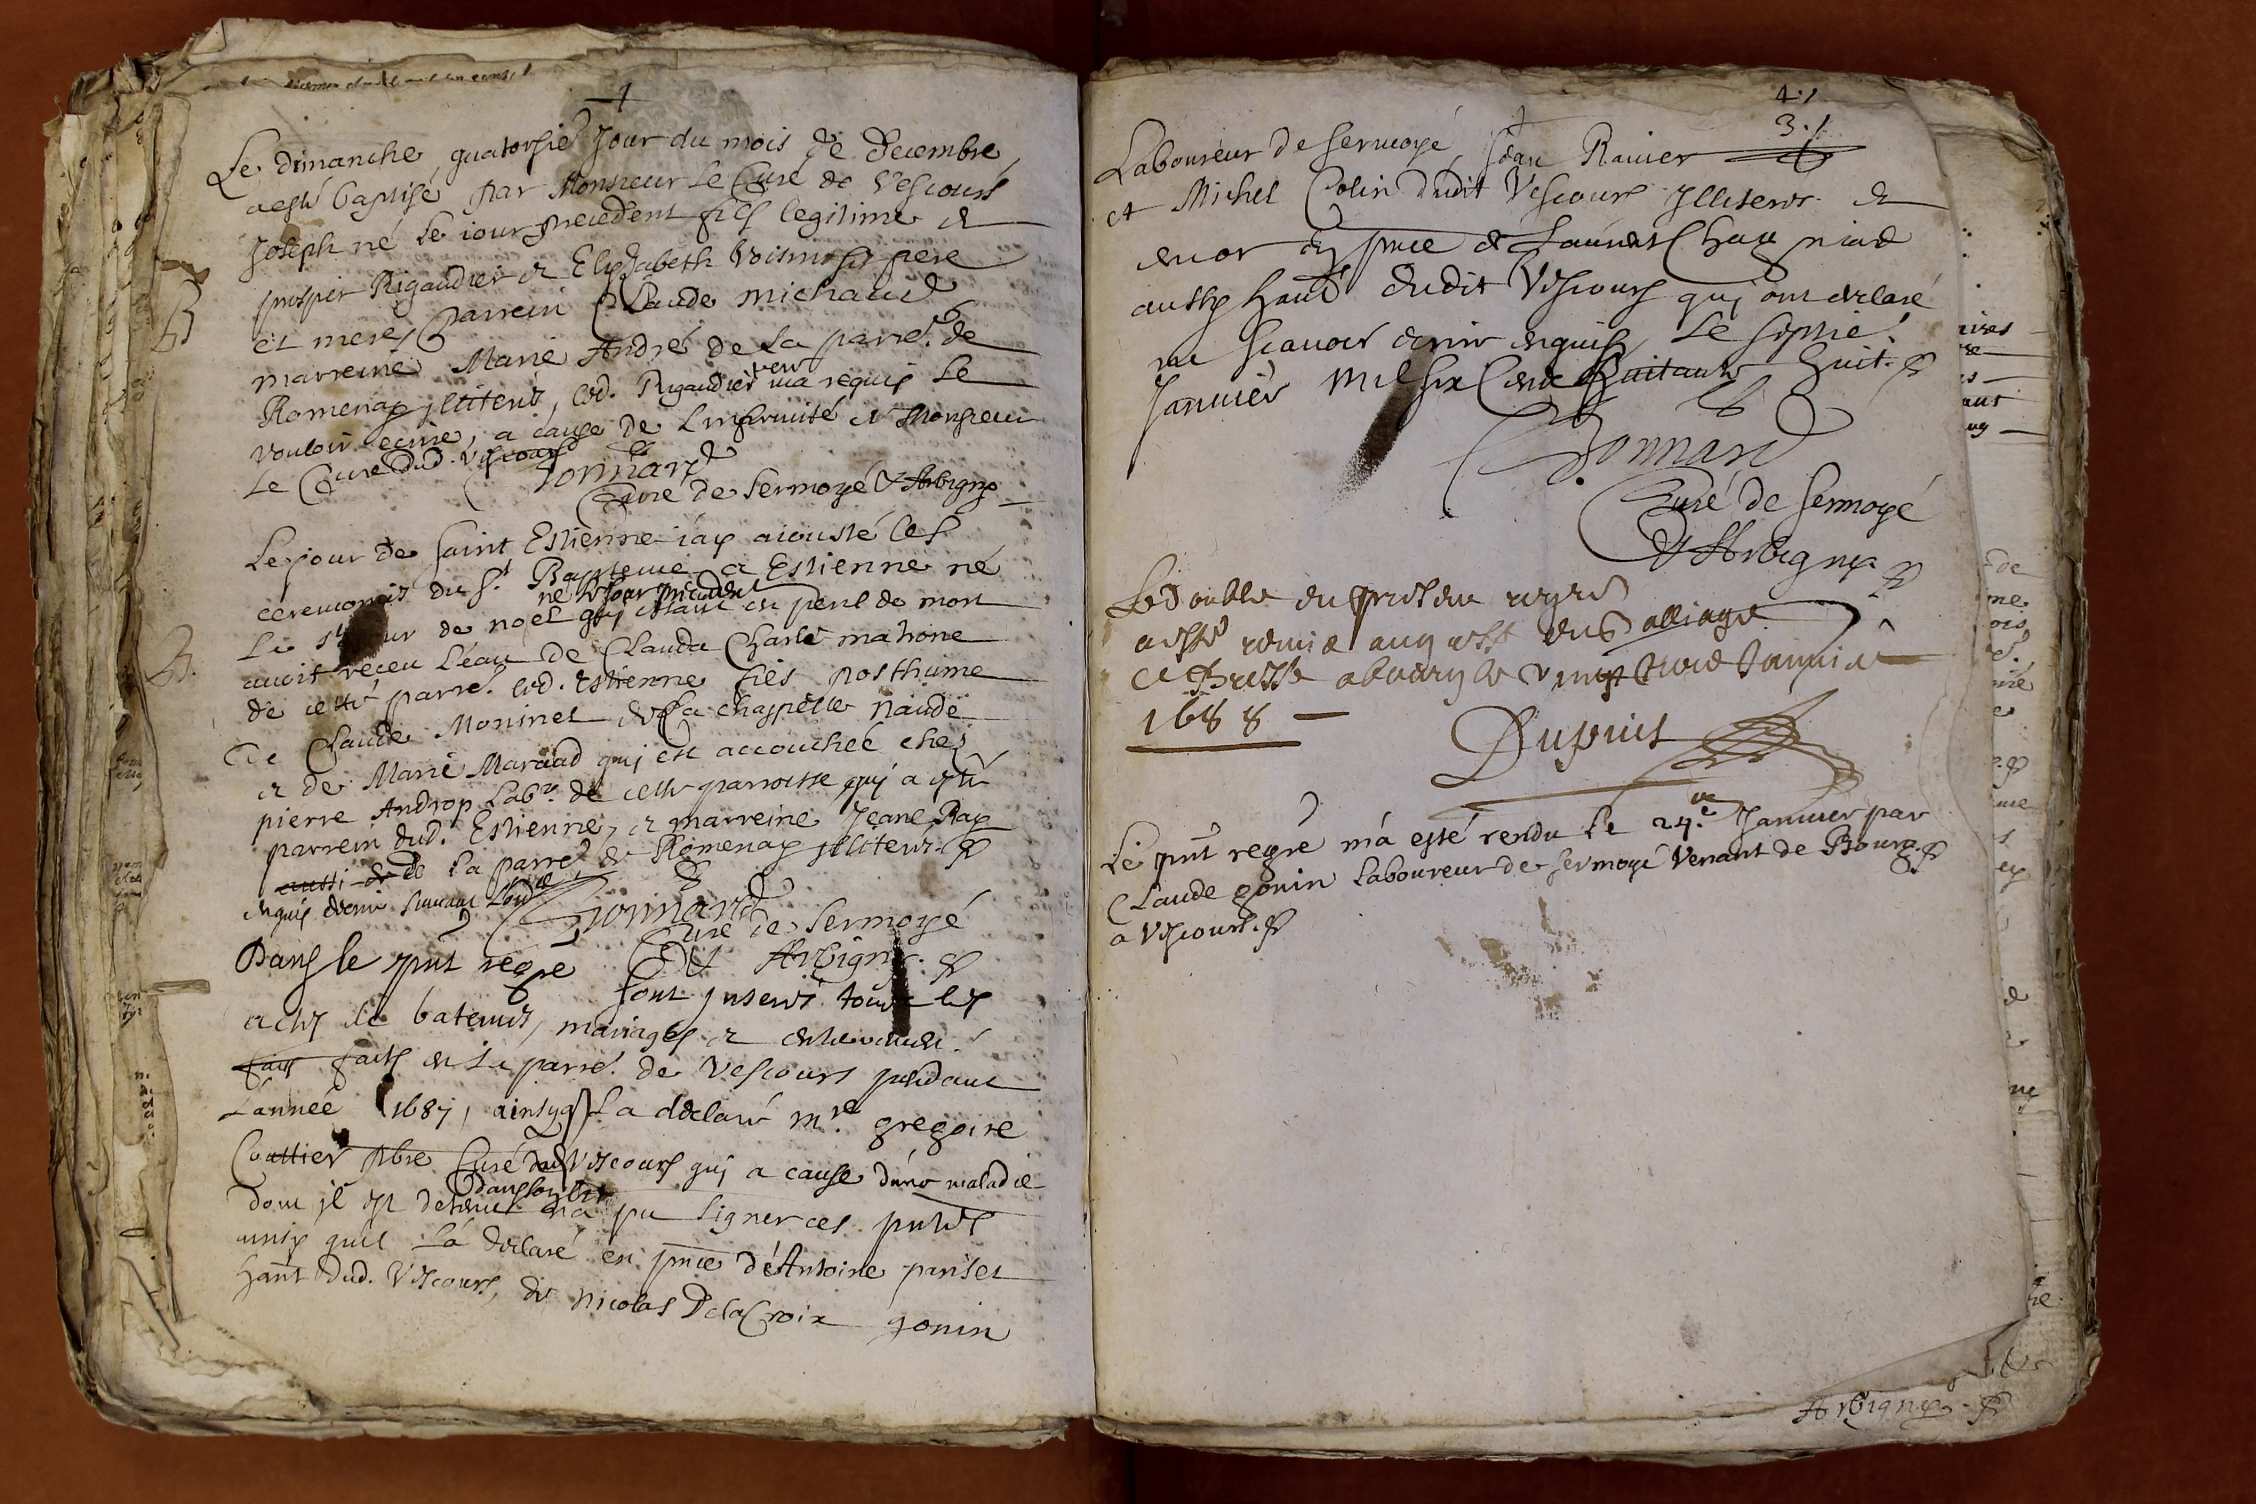 Le dimanche quatorsie Jour du mois de decembre
a esté baptisé par Monsieur le Curé de Vescours
Joseph né le iour precedent fils legitime de
prosper Rigaudier et Elizabeth Voisin pere
et mere, Parrein Claude Michaud
marreine Marie André de la parre. de
Romenay illiterés, led. Rigaudier m'a requis le
vouloir ecrire, a cause de L'infirmité de Monsieur
Le Curé dud. Vescours
Bonnard
Curé de Sermoyé & Arbigny
Le jour de saint Estienne iay aiousté les
ceremonies du St. Bapteme a Estienne né
né le jour precedent
Le jour de noel qui estant en peril de mort
avoit receu l'eau de Clauda Charle matrone
de cette parre. led. Estienne fils posthume
De Claude Moninet de la chappelle naude
et de Marie Maraud qui est accouchée chez
pierre Androp Labr. de cette parroisse qui a esté
parrein dud. Estienne, et marreine Jeane Ray
aussi de la parre de Romenay illiterés
enquis
Bonnard
Curé de Sermoyé
Et Arbigny
Dans le pnt regre sont inserés tous les
actes de batemes, mariages et enterremens
fais faits en la parre. de Vescours pendant
L'année 1687, ainsy qu la declaré mre. gregoire
Cottier pbre Curé dud Vescours qui a cause d'une maladie
dans son lit
dont il est detenu na pu signer ces pntes
mais quil la declaré en pnce de Antoine pariset
hant dud. Vescours, de Nicolas DelaCroix gonin
4./
3./
Laboureur de Sermoyé, Jean Ravier
et Michel Colin dudit Vescours Illiterés et
encor en pnce de Laurent
aussy hant dudit Vescours qui ont declaré
ne scavoir ecrire enquis, Le septie.
Janvier mil six Cent huitante huit.
Bonnard
Curé de Sermoyé
& Arbigny
Le double du present regre
a esté remis au greffe du Balliage
de Bresse a bourg le vingt trois Janvier
1688
Dupuis
Le pnt regre m'a esté rendu le 24.e Janvier par
Claude gonin laboureur de Sermoyé Venant de Bourg.
a Vescours.
Arbigny